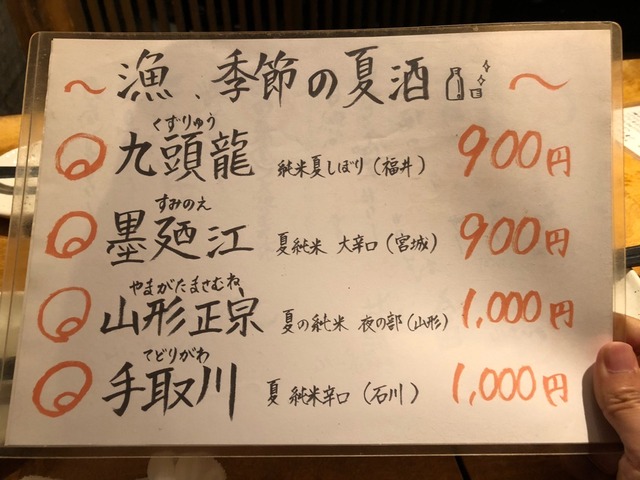 ～漁、季節の夏酒～
くずりゅう
九頭龍 純米夏しぼり(福井) 900円
すみのえ
墨廼江 夏純米 大辛口(宮城) 900円
やまがたまさむね
山形正宗 夏の純米 夜の部(山形) 1,000円
てどりがわ
手取川 夏 純米辛口(石川) 1,000円